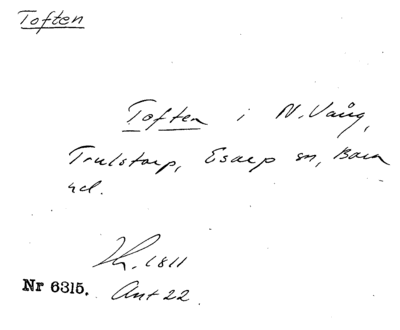 Toften
Toften i N. Vång,
Trulstorp, Esarp sn, Bara
hd.
Lh. 1811
Nr 6315. Ant 22.